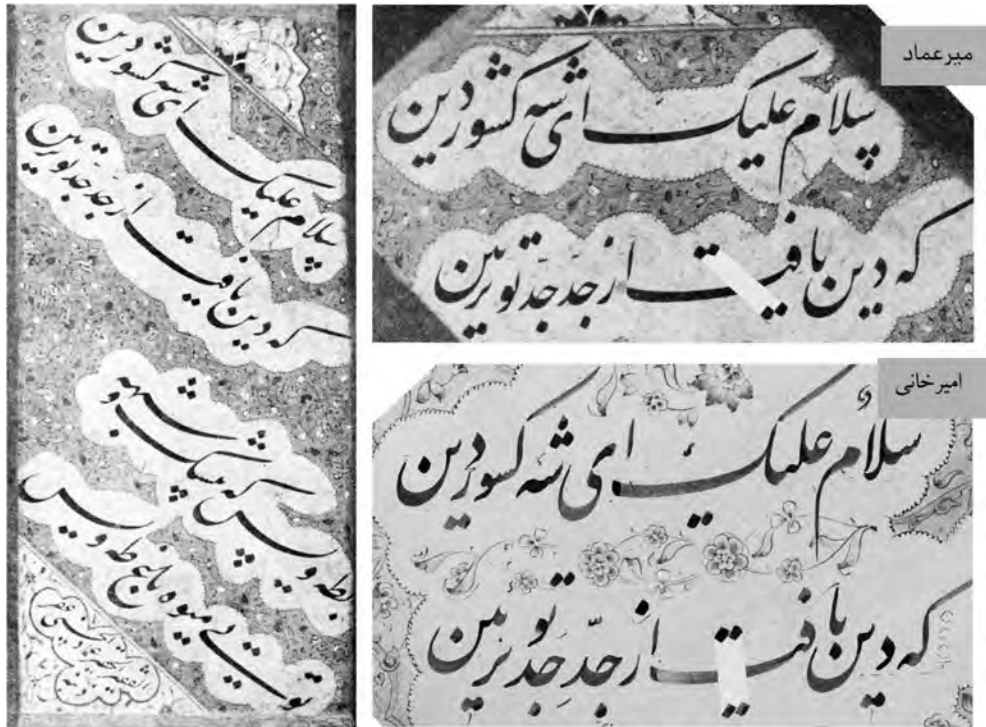 سلام علیک ای شه کشور دین
که دین یافت از جد جد تو تزیین
بطه و یس که
تویی میوه باغ طه و یس
میرعماد
سلام علیک ای شه کشور دین
که دین یافت از جَدِّ جَدِّ تو تزیین
امیرخانی
سلام علیک ای شه کشور دین
که دین یافت از جدِّ جدِ تو تزیین